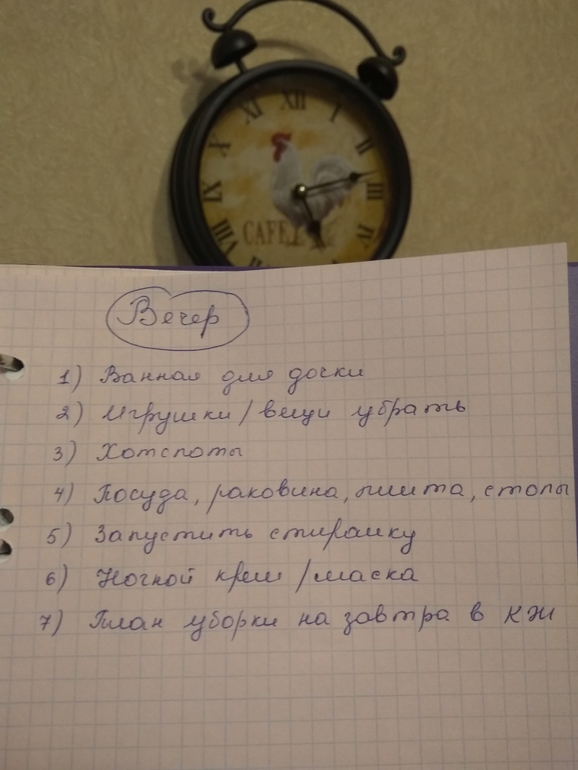 XI XII I
X II
IX III
VIII IV
CAFE
Вечер
1) Ванная для дочки
2) Игрушки/вещи убрать
3) Хотспоты
4) Посуда, раковина, плита, столы
5) Запустить стиралку
6) Ночной крем /маска
7) План уборки на завтра в КЖ